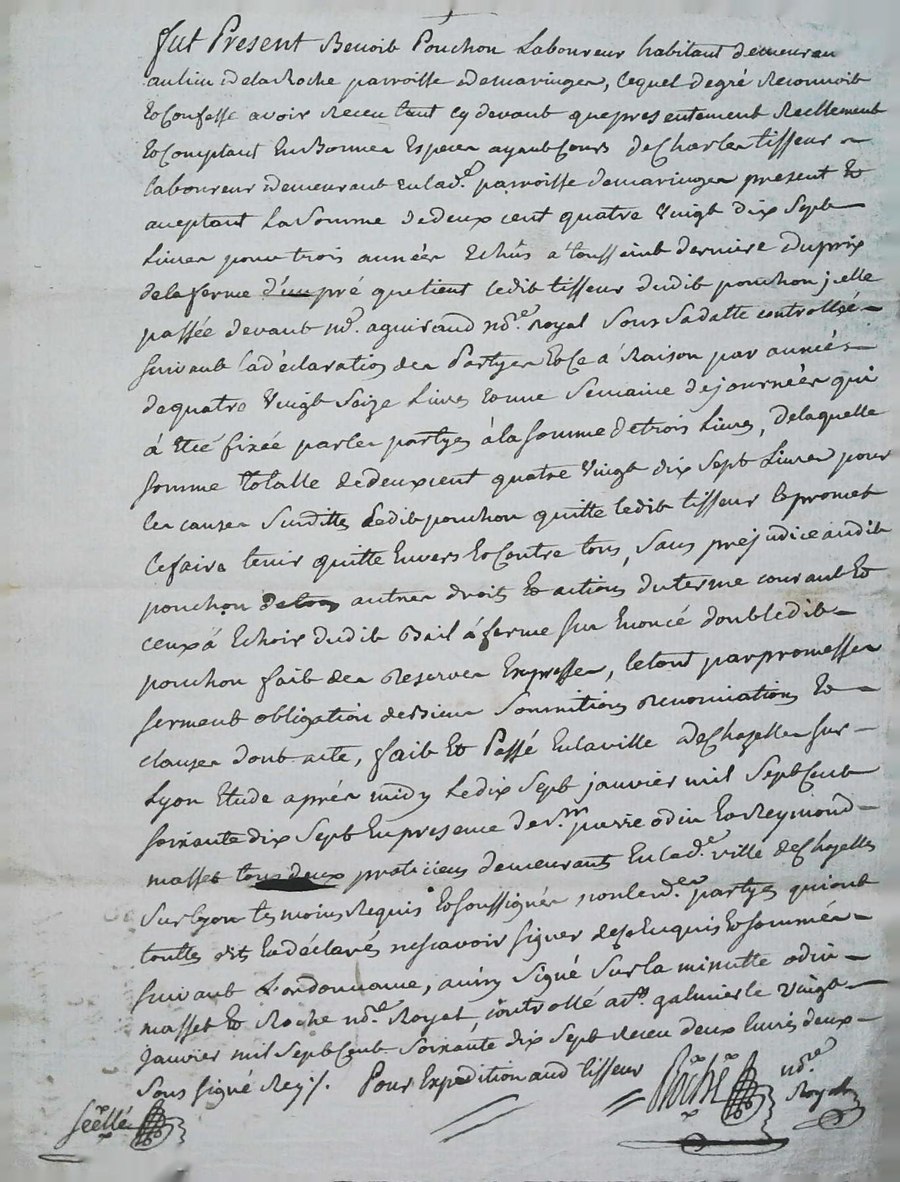 fut Present Benoit Ponchon Laboureur habitant demeuran
au lieu delaRoche parroisse demaringes, lequel degré Reconnoit
Et Confesse avoir Receu tant cy devant que presentement Reellement
Et Comptant En Bonnes Especes ayant Cours de Charles tisseur
laboureur demeurant en lad.e parroisse demaringes present Et
aceptant La Somme dedeux cent quatre Vingt dix Sept
Livres pour trois années Echûs a toussaint derniere du prix
delaferme d'un pré quetient ledit tisseur dudit ponchon jcelle
passée devant me. aguiraud no.re royal Sous Sadatte controllée
suivant la déclaration des Partyes Et Ce a Raison par année
de quatre Vingt Seize Livres Et une Semaine dejournées qui
à Eté fixée par les partyes à la Somme de trois Livres, delaquelle
somme totalle dedeux cent quatre Vingt dix Sept Livres pour
les causes Surdittes Ledit ponchon quitte ledit tisseur Et promet
Le faire tenir quitte Envers Et Contre tous, Sans préjudice audit
ponchon autres droits Et actions du terme courant Et
ceux à Echoir dudit Bail à ferme Sus Enoncé dont ledit
ponchon fait des Reserves Expresses, letout par promesses
serment obligation de Biens Soumitions Renonciations Et
clauses dont acte, fait Et Passé En laville de Chazelles sur
Lyon Etude aprés midy Le dix Sept janvier mil Sept Cent
soixante dix Sept En presence de s.rs pierre odin Et Reymond
masset tous deux praticiens demeurants En lad.e ville de Chazelles
Sur Lyon temoins Requis Et Soussignés non lesd.es partyes qui ont
touttes dit Et déclaré ne scavoir signer de ce Enquis Et Sommés
suivant L'ordonnance, ainsy Signé Sur la minutte odin
masset Et Roche no.re Royal, controllé a st. galmier le Vingt
Janvier mil Sept Cent Soixante dix Sept Receu deux livres deux
Sous signé Reys. Pour Expedition aud tisseur
Roche no.re
Royal
Scellé